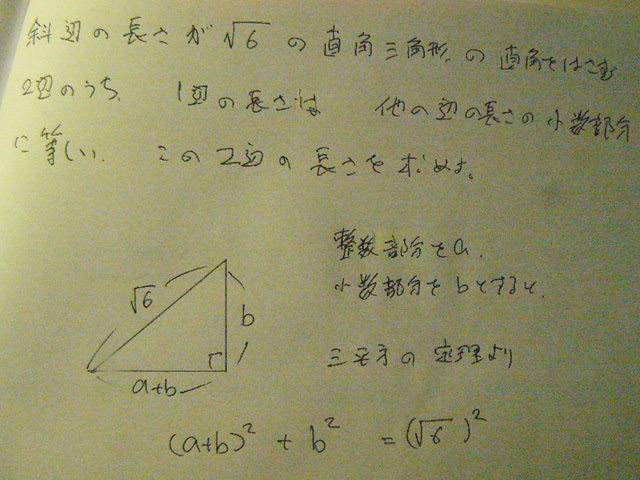 斜辺の長さが√6の直角三角形の直角をはさむ
2辺のうち、1辺の長さは他の辺の長さの小数部分
に等しい。この2辺の長さを求めよ。
整数部分をa、
小数部分をbとすると、
√6
b
三平方の定理より
a+b
(a+b)² + b² = (√6)²